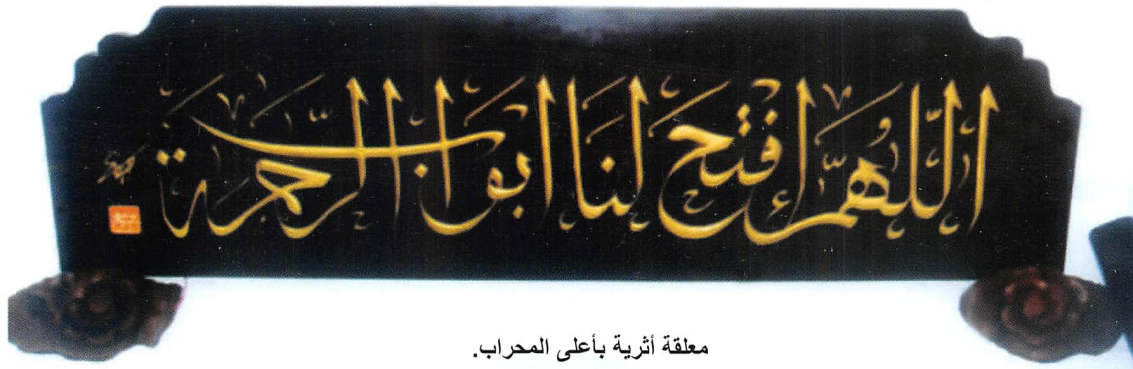 اللّهُمَّ إفتَحَ لنَا ابوَابَ الرّحمَةَ
معلقة أثرية بأعلى المحراب.